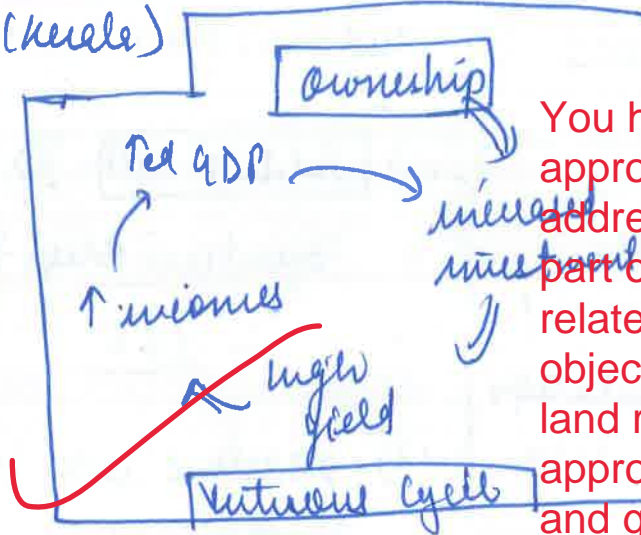 (Kerala)
Owneship
↑ed GDP
increased
investment
↑ incomes
high
yield
Virtuous Cycle
You h
appro
addre
part o
relate
objec
land r
appro
and q